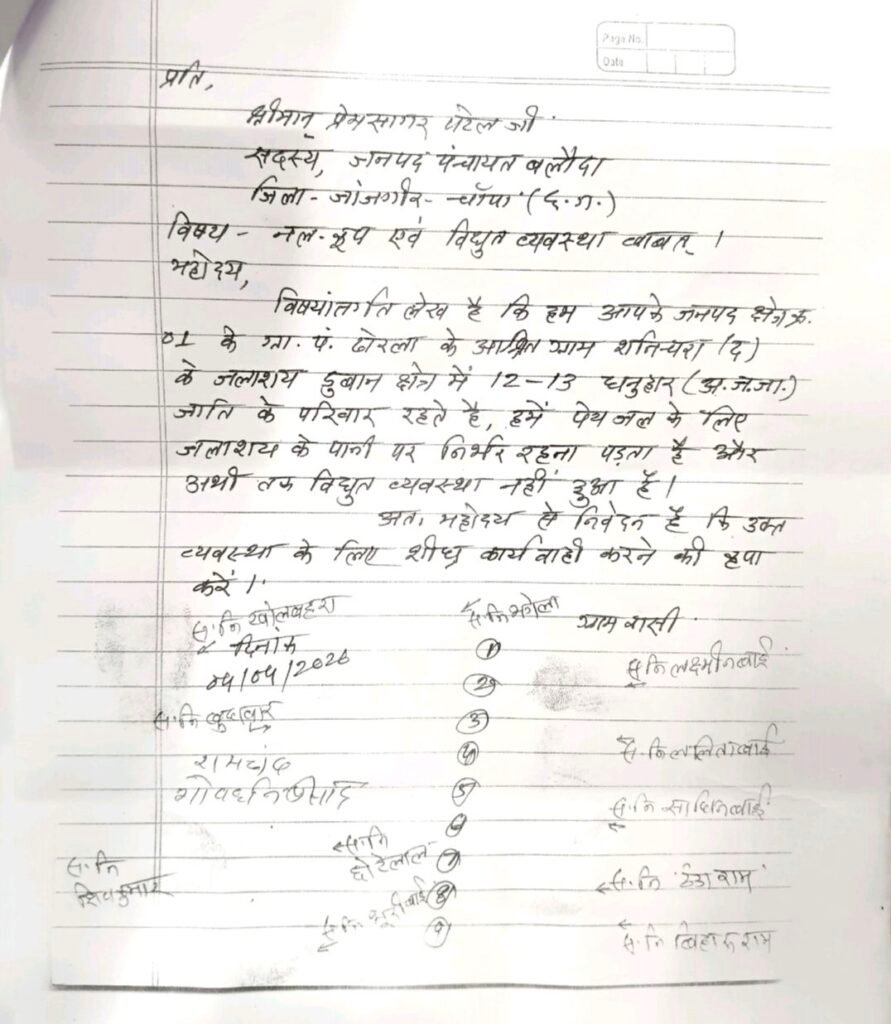 Page No.
Date
प्रति,
श्रीमान् प्रेमसागर पटेल जी
सदस्य, जनपद पंचायत बलौदा
जिला - जांजगीर - चाँपा (छ.ग.)
विषय - नल-कूप एवं विद्युत व्यवस्था बाबत् ।
महोदय,
विषयांतर्गत लेख है कि हम आपके जनपद क्षेत्र क्र.
01 के ग्रा. पं. ढोरला के आश्रित ग्राम शनिचरा (द)
के जलाशय डुबान क्षेत्र में 12-13 धनुहार (अ.ज.जा.)
जाति के परिवार रहते है, हमें पेयजल के लिए
जलाशय के पानी पर निर्भर रहना पड़ता है और
अभी तक विद्युत व्यवस्था नहीं हुआ है।
अतः महोदय से निवेदन है कि उक्त
व्यवस्था के लिए शीघ्र कार्यवाही करने की कृपा
करें ।
स.नि खोलबहरा
स.नि भगेला
ग्राम वासी
दिनांक
04/04/2026
①
स.नि लक्ष्मीनबाई
②
स.नि बुधवार
③
रामचंद
④
स.नि ललिताबाई
गोवर्धन प्रसाद
⑤
स.नि साधिनबाई
⑥
स.नि
छोटेलाल
⑦
स.नि
शिवकुमार
स.नि ठंडा राम
स.नि भूरीबाई
⑧
⑨
स.नि बिहारु राम